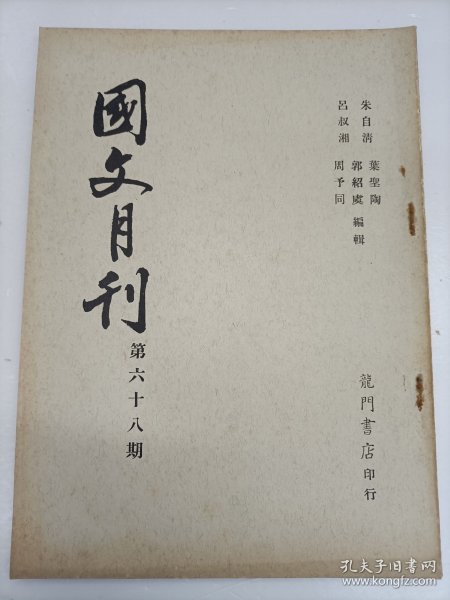 朱自清 葉聖陶
郭紹虞 編輯
呂叔湘 周予同
龍門書店印行
國文月刊
第六十八期
孔夫子旧书网
www.kongfz.com